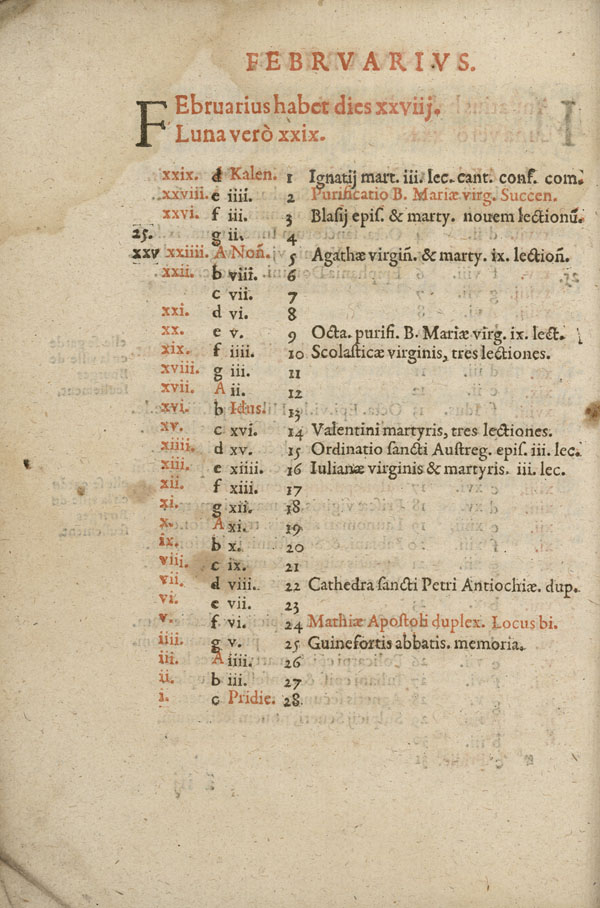 FEBRVARIVS.
FEbruarius habet dies xxviij.
Luna verò xxix.
xxix. d Kalen. 1 Ignatij mart. iii. lec. cant. conf. com.
xxviii. e iiii. 2 Purificatio B. Mariæ virg. Succen.
xxvi. f iii. 3 Blasij epis. & marty. nouem lectionū.
25. g ii. 4
xxv xxiiii. A Noñ. 5 Agathæ virgiñ. & marty. ix. lectioñ.
xxii. b viii. 6
c vii. 7
xxi. d vi. 8
xx. e v. 9 Octa. purifi. B. Mariæ virg. ix. lect.
xix. f iiii. 10 Scolasticæ virginis, tres lectiones.
xviii. g iii. 11
xvii. A ii. 12
xvi. b Idus. 13
xv. c xvi. 14 Valentini martyris, tres lectiones.
xiiii. d xv. 15 Ordinatio sancti Austreg. epis. iii. lec.
xiii. e xiiii. 16 Iulianæ virginis & martyris. iii. lec.
xii. f xiii. 17
xi. g xii. 18
x. A xi. 19
ix. b x. 20
viii. c ix. 21
vii. d viii. 22 Cathedra sancti Petri Antiochiæ. dup.
vi. e vii. 23
v. f vi. 24 Mathiæ Apostoli duplex. Locus bi.
iiii. g v. 25 Guinefortis abbatis. memoria.
iii. A iiii. 26
ii. b iii. 27
i. c Pridie. 28